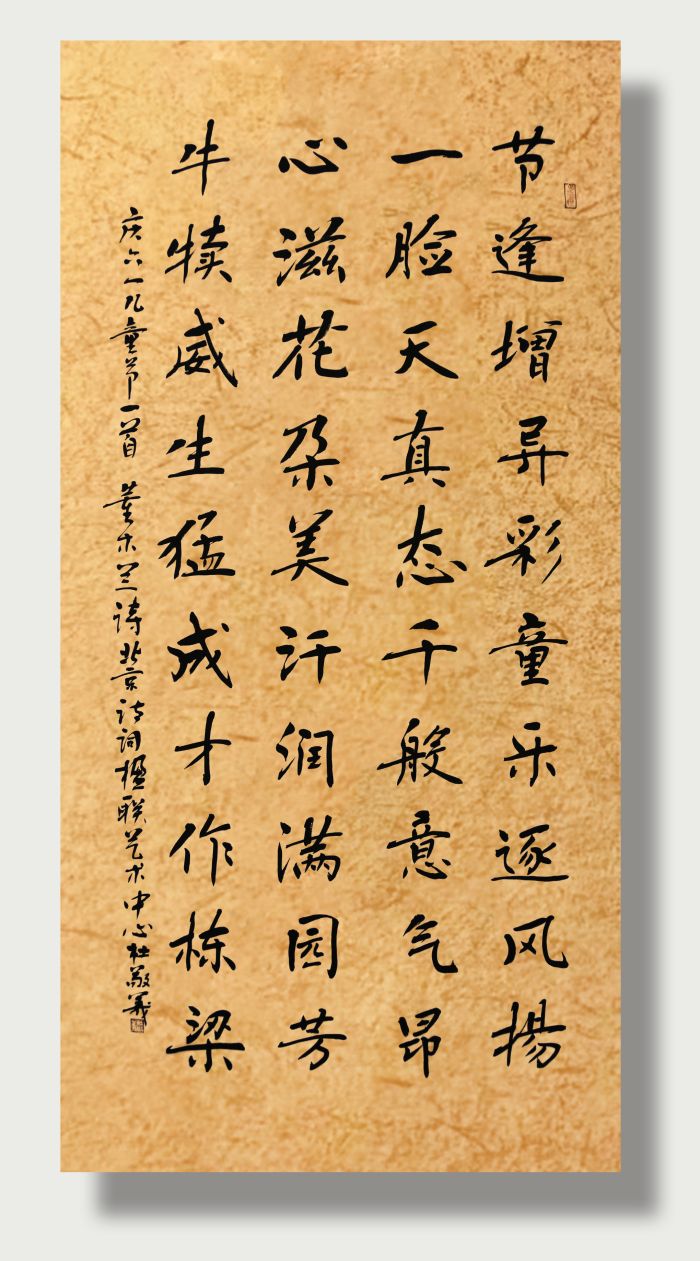 节逢增异彩童乐逐风扬
一脸天真态千般意气昂
心滋花朵美汗润满园芳
牛犊威生猛成才作栋梁
庆六一儿童节一首 董木兰诗北京诗词楹联艺术中心杜敬义